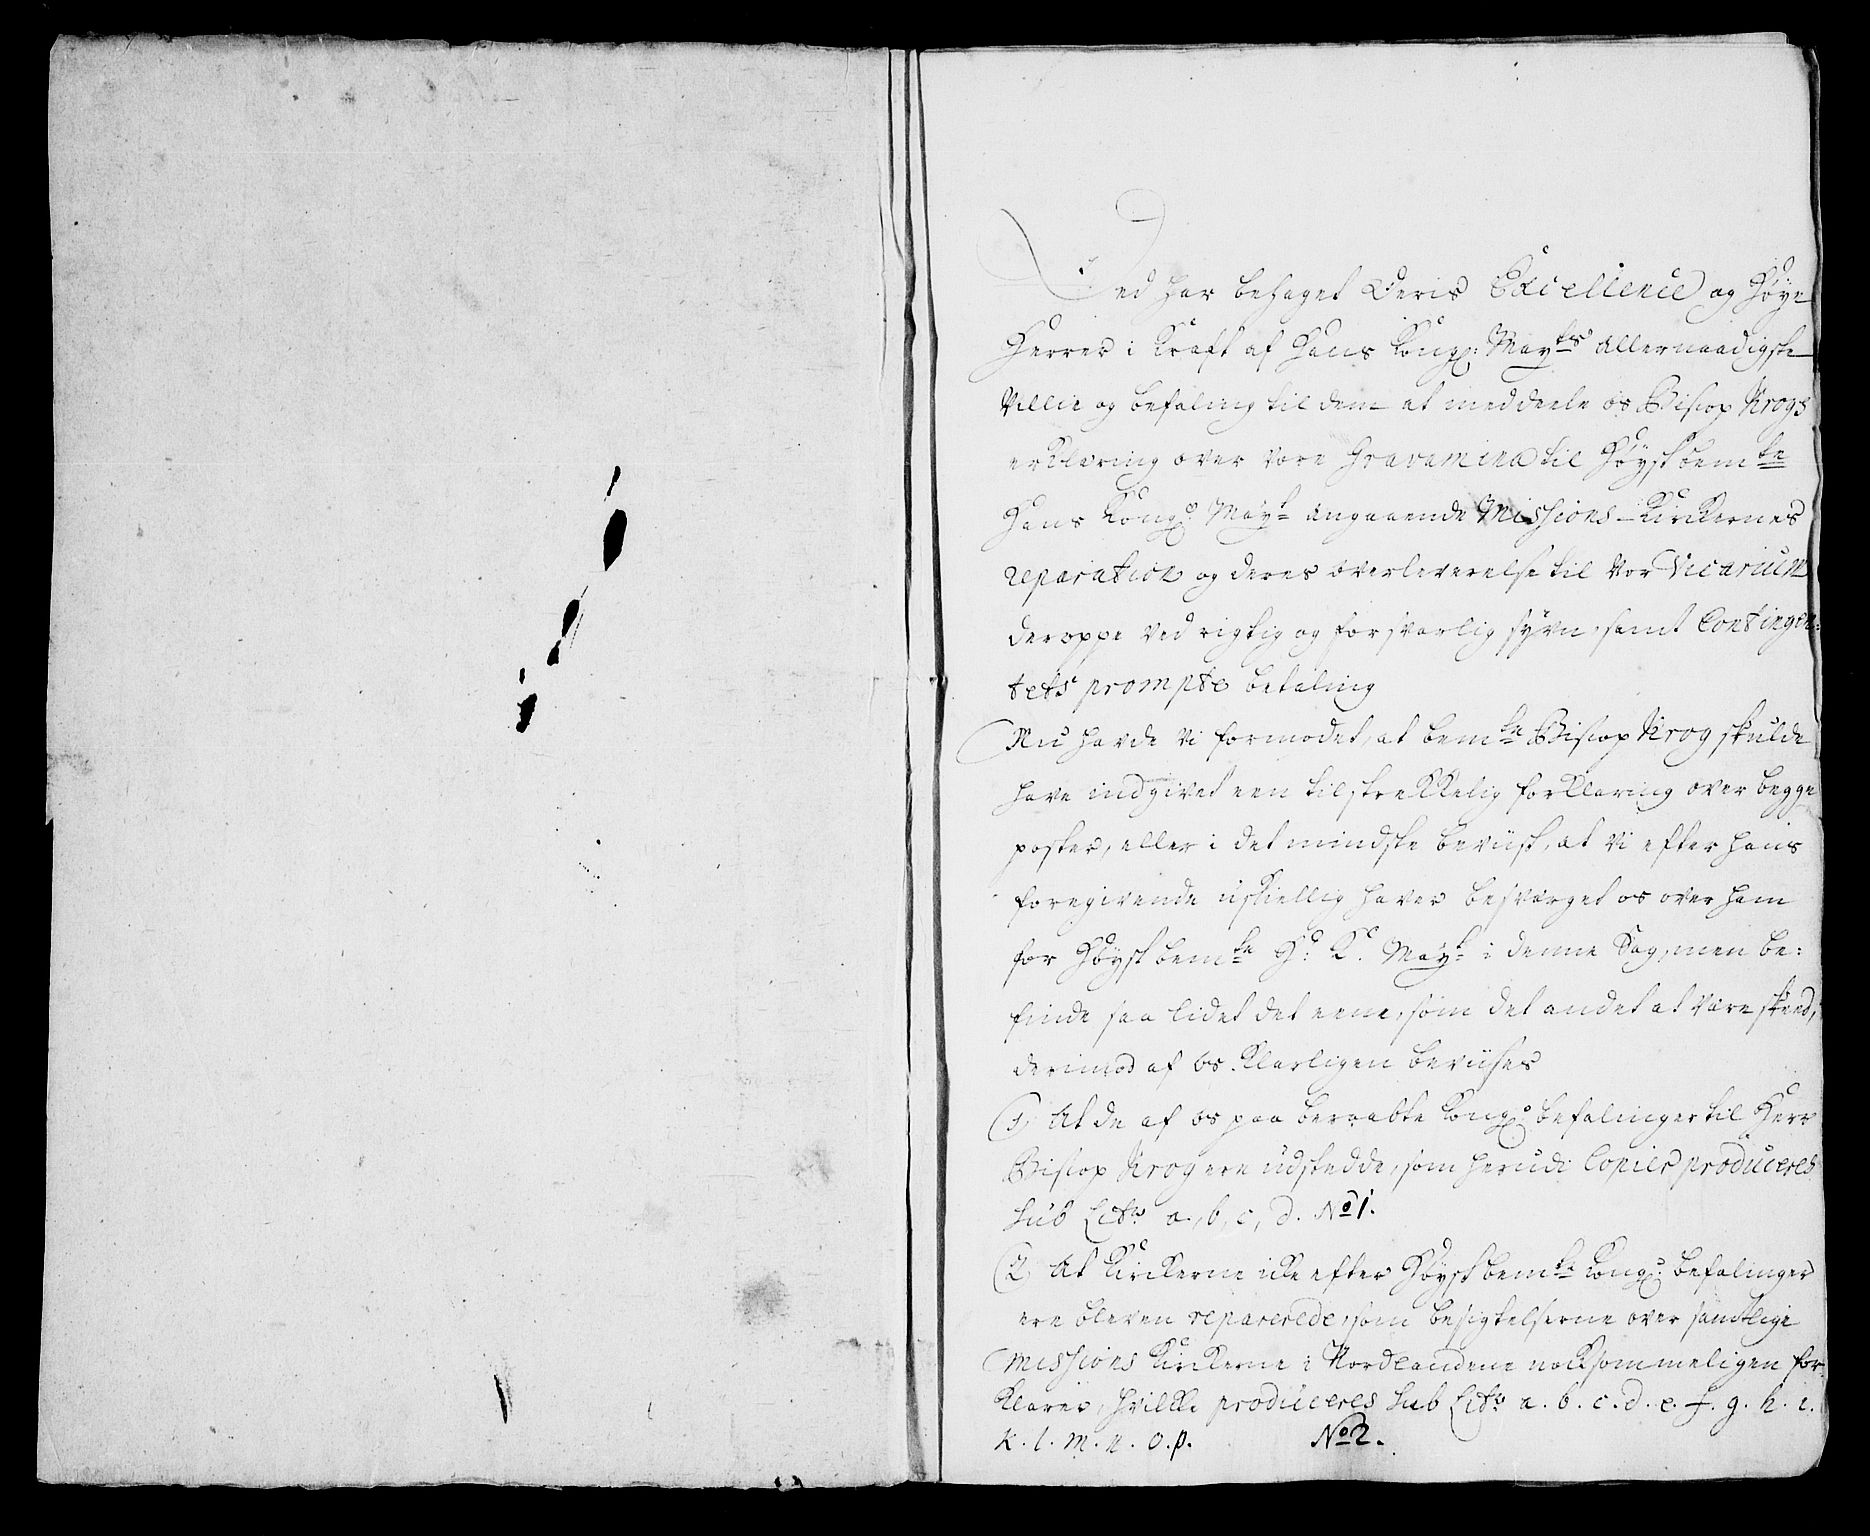 Ded har behaget Deris Excellence og Høye
Herrer i Kraft af Hans Kongl: Mayts allernaadigste
Villie og befaling til dem at meddeele os Biscop Krogs
erklæring over vore Gravamina til Høystbemte
Hans Kongl: Mayt angaaende Missions-Kirckernes
reparation og deres overleverelse til vor Vicarium
deroppe ved rigtig og forsvarlig syvn, samt Contingen:
tets prompte betaling
Nu havde vi formodet, at bemte Biscop Krog skulde
have indgivet een tilstrekkelig forklaring over begge
poster, eller i det mindste beviist, at vi efter hans
foregivende uskiellig haver besværget os over ham
for Høystbemte H: K. Mayt i denne Sag, men be:
finde saa lidet det eene, som det andet at være skeed,
derimod af os klarligen beviises
1, At de af os paa beraabte Kongl: befalinger til Herr
Biscop Krog ere udstedde, som herudi Copier produceres
sub Litr: a, b, c, d. No 1.
2, At Kirckerne icke efter Høystbemte Kongl: befalinger
ere bleven reparerede, som besigtelserne over samtlige
Missions Kirckerne i Nordlandene nocksommeligen for:
klarer, hvilke produceres sub Litr: a. b. c. d. e. f. g. h. i.
k. l. m. n. o. p. No 2.